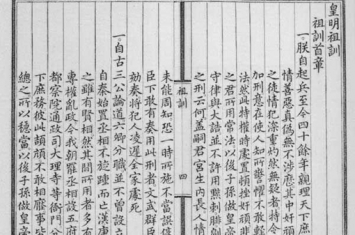 皇明祖訓
祖訓首章
一朕自起兵至今四十餘年親理天下庶務人
情善惡真偽無不涉歷其中奸頑
之徒情犯深重灼然無疑者特令
加刑意在使人知所警懼不敢輕
法然此特權時處置頓挫奸頑非
之君所用常法以後子孫做皇帝
守律與大誥並不許用黥刺剕劓
之刑云何蓋嗣君宮生內長人情
祖訓
四
未能周知恐一時所施不當誤傷
臣下敢有奏用此刑者文武群臣
劾奏將犯人凌遲全家處死
一自古三公論道六卿分職並不曾設立
自秦始置丞相不旋踵而亡漢唐
之雖有賢相然其間所用者多有
專權亂政今我朝罷丞相設五府
都察院通政司大理寺等衙門分
下庶務彼此頡頏不敢相壓事皆
總之所以穩當以後子孫做皇帝